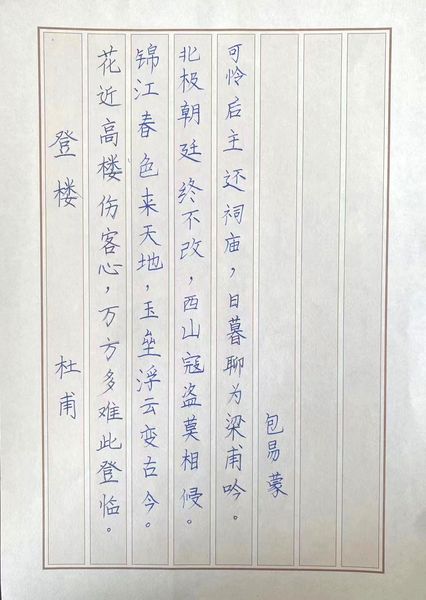 登楼 杜甫
花近高楼伤客心，万方多难此登临。
锦江春色来天地，玉垒浮云变古今。
北极朝廷终不改，西山寇盗莫相侵。
可怜后主还祠庙，日暮聊为梁甫吟。
包易蒙